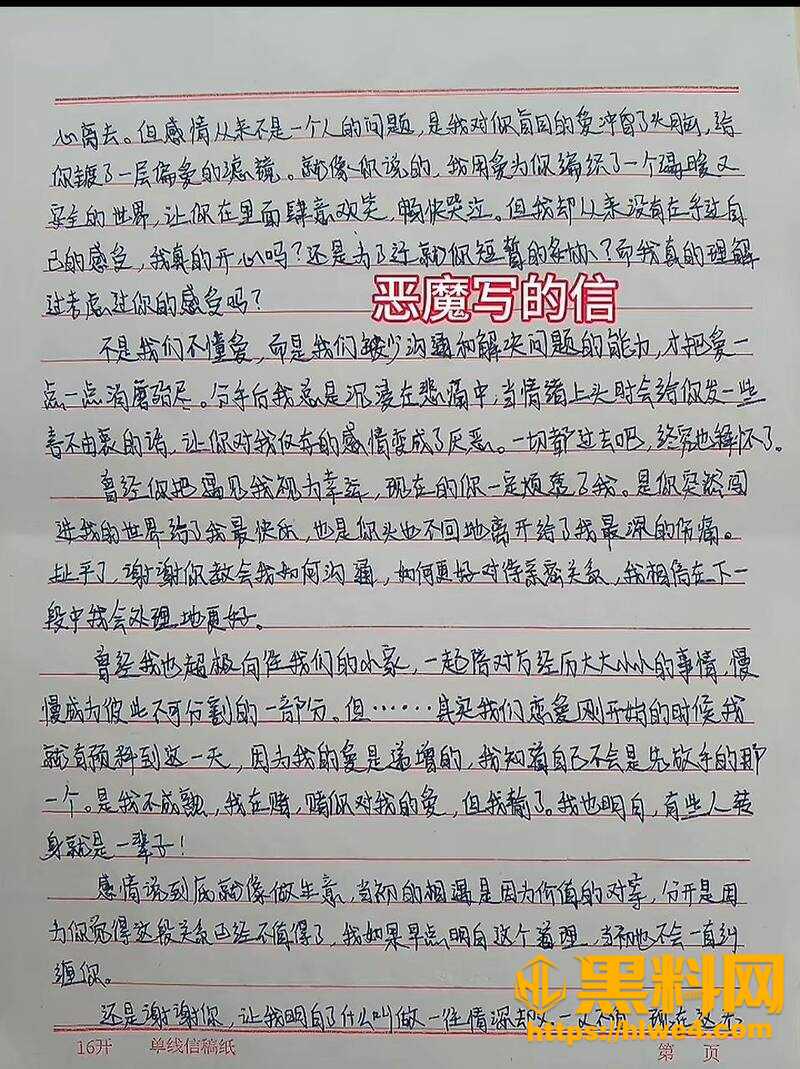 心离去。但感情从来不是一个人的问题，是我对你盲目的爱冲昏了头脑，给
你镀了一层偏爱的滤镜。就像你说的，我用爱为你编织了一个温暖又
安全的世界，让你在里面肆意欢笑，畅快哭泣。但我却从来没有在乎过自
己的感受，我真的开心吗？还是为了迁就你短暂的？而我真的理解
过考虑过你的感受吗？
恶魔写的信
不是我们不懂爱，而是我们缺少沟通和解决问题的能力，才把爱一
点一点消磨殆尽。分手后我总是沉浸在悲痛中，当情绪上头时会给你发一些
言不由衷的话，让你对我仅存的感情变成了厌恶。一切都过去吧，终究也释怀了。
曾经你把遇见我视为幸运，现在的你一定烦透了我。是你突然闯
进我的世界给了我最快乐，也是你头也不回地离开给了我最深的伤痛。
扯平了，谢谢你教会我如何沟通，如何更好对待亲密关系，我相信在下一
段中我会处理地更好。
曾经我也超极向往我们的小家，一起陪对方经历大大小小的事情，慢
慢成为彼此不可分割的一部分。但……其实我们恋爱刚开始的时候我
就有预料到这一天，因为我的爱是递增的，我知道自己不会是先放手的那
一个。是我不成熟，我在赌，赌你对我的爱，但我输了。我也明白，有些人转
身就是一辈子！
感情说到底就像做生意，当初的相遇是因为价值的对等，分开是因
为你觉得这段关系已经不值得了，我如果早点明白这个道理，当初也不会一直纠
缠你。
还是谢谢你，让我明白了什么叫做一往情深却又
黑料网
https://hlwe4.com
16开 单线信稿纸 第 页